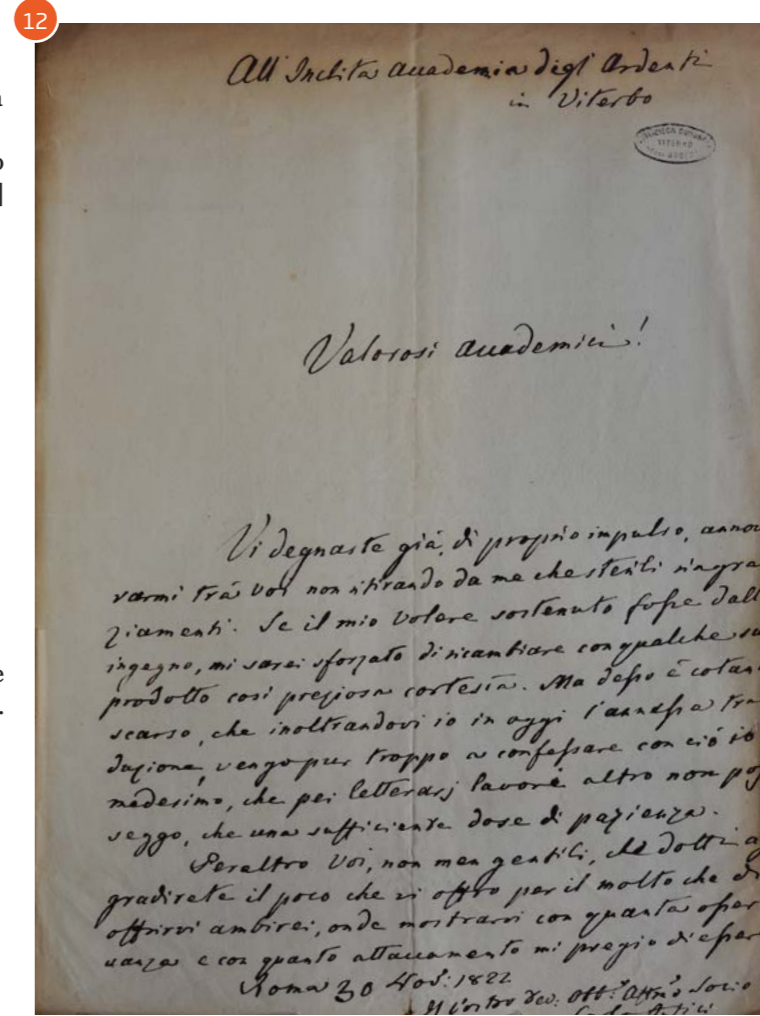 12
All' Inclita Accademia degl' Ardenti
in Viterbo
BIBLIOTECA COMUNALE
VITERBO
DEGLI ARDENTI
Valorosi Accademici!
Vi degnaste già, di proprio impulso, anno
varmi trà voi non ritirando da me che sterili ringra
ziamenti. Se il mio volere sostenuto fosse dall
ingegno, mi sarei sforzato di ricambiare con qualche su
prodotto così preziosa cortesia. Ma desso è cotan
scarso, che inoltrandovi io in oggi l'annessa tra
duzione, vengo pur troppo a confessare con ciò io
medesimo, che pei letterarj lavori altro non pos
seggo, che una sufficiente dose di pazienza.
Peraltro Voi, non men gentili, che dotti a
gradirete il poco che vi offro per il molto che di
offrirvi ambirei, onde mostrarvi con quanta osser
vanza e con quanto attaccamento mi pregio d'esser
Roma 30 Nov: 1822
Il vostro dev: obb: Socio
Carlo Antici